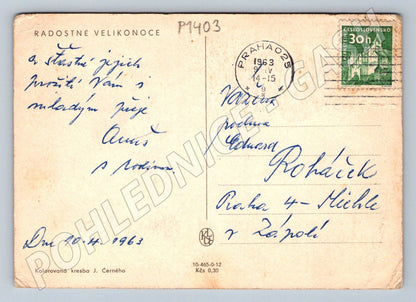 P1403
RADOSTNÉ VELIKONOCE
a šťastné jejich
prožití Vám i
mladým přeje
s rodinou
Dne 10.4. 1963
Kolorovaná kresba J. Černého
PRAHA 025
1963
9. IV
14-15
9
ČESKOSLOVENSKO
30h
Vážená
rodina
Edward
Roháček
Praha 4 - Michle
v Zápolí
10-465-0-12
Kčs 0,30
POHLEDNICE GASH